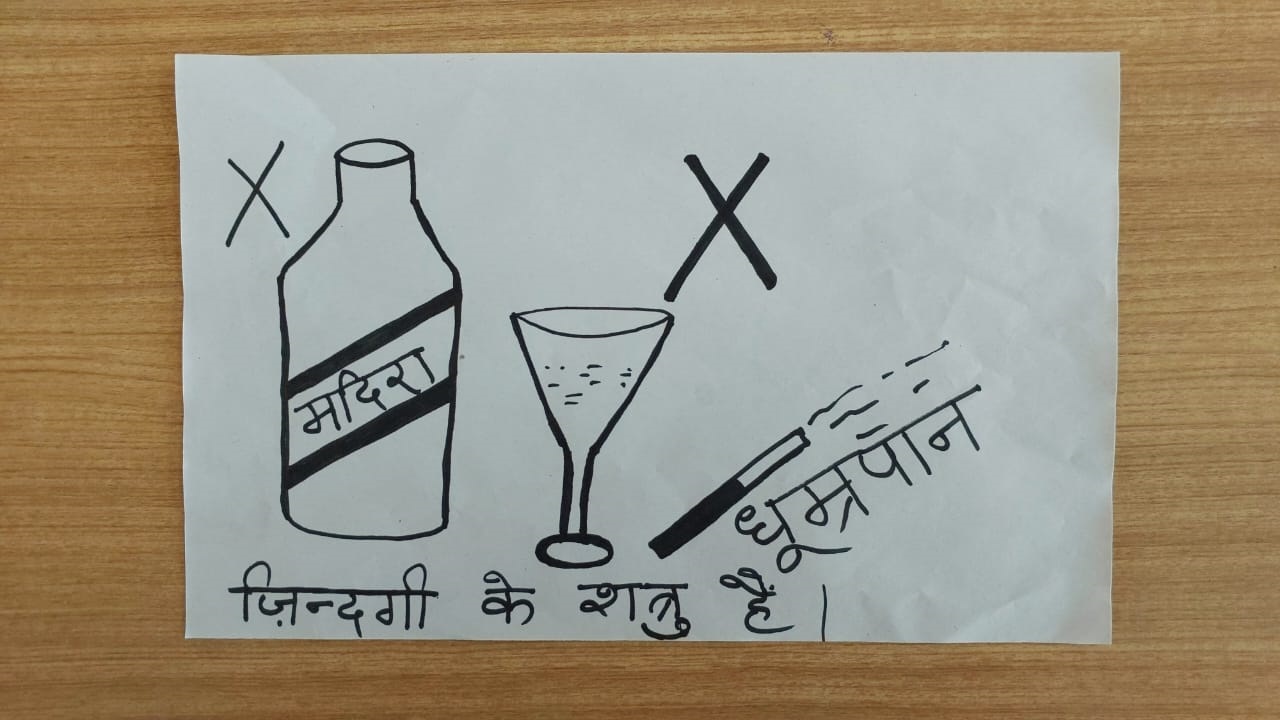 मदिरा
धूम्रपान
ज़िन्दगी के शत्रु हैं।